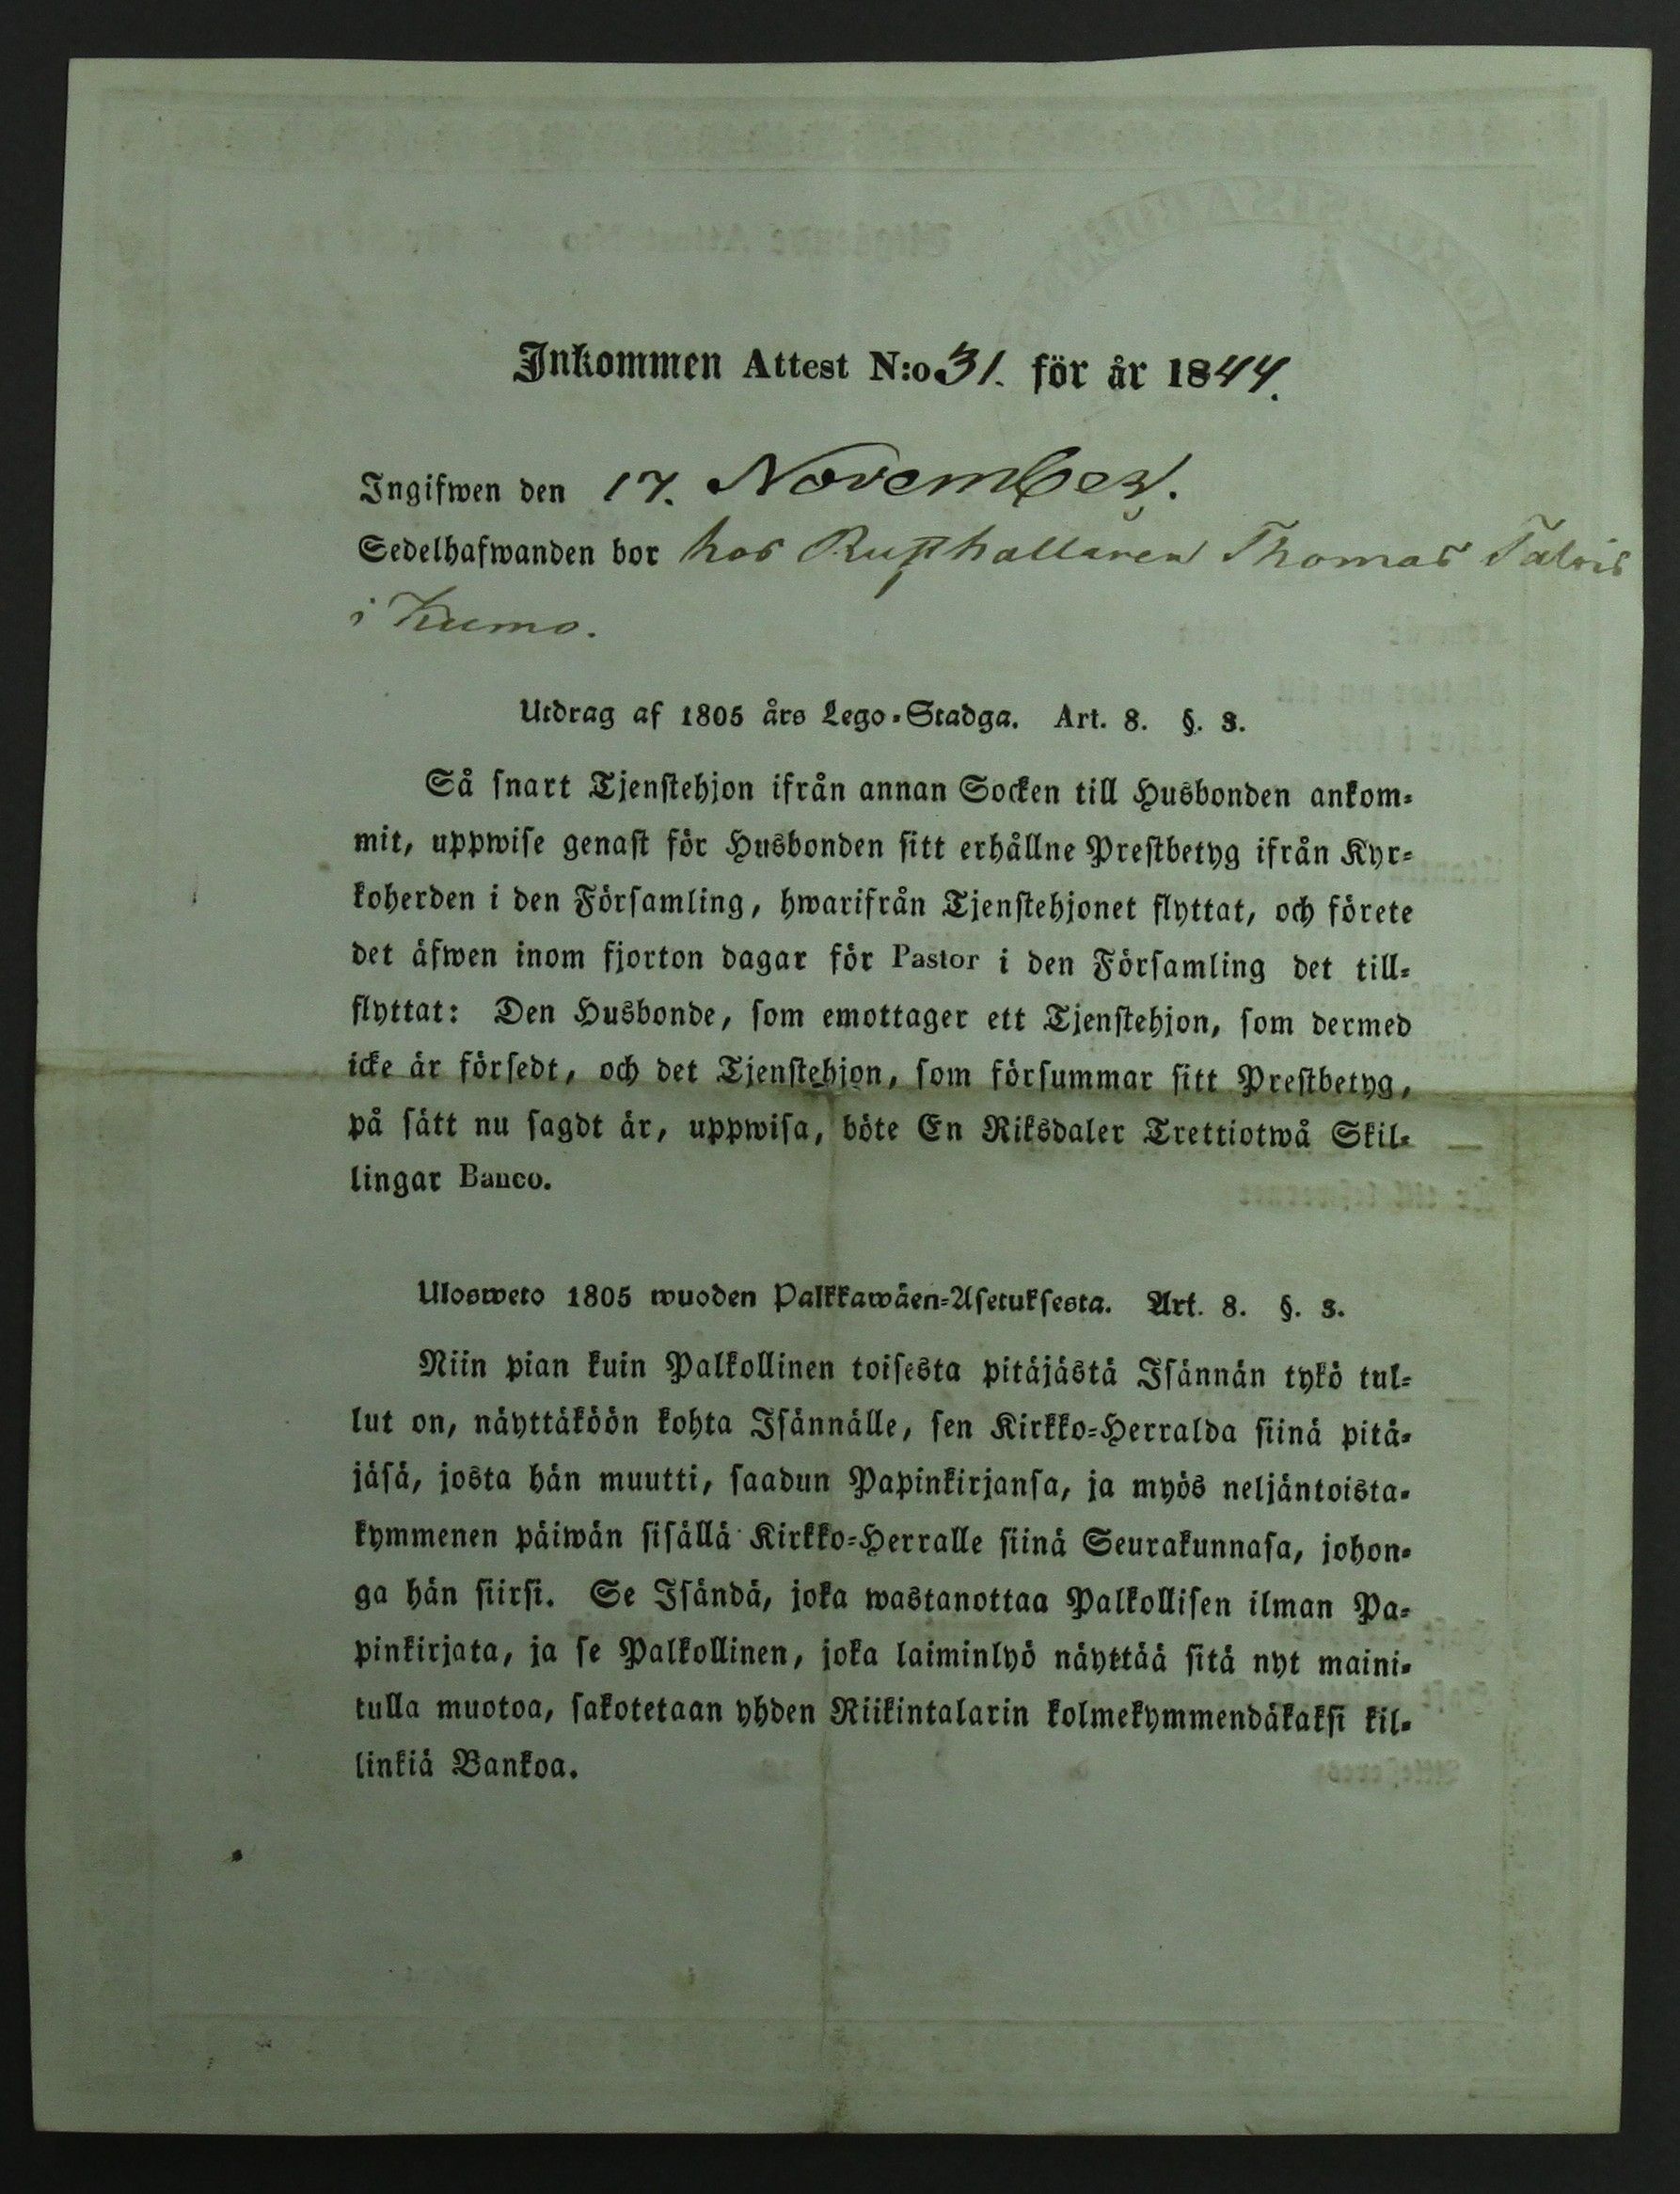 Inkommen Attest N:o 31. för år 1844.
Ingifwen den 17. November.
Sedelhafwanden bor hos Rusthållaren Thomas Talois
i Kumo.
Utdrag af 1805 års Lego-Stadga. Art. 8. §. 3.
Så snart Tjenstehjon ifrån annan Socken till Husbonden ankom-
mit, uppwise genast för Husbonden sitt erhållne Prestbetyg ifrån Kyr-
koherden i den Församling, hwarifrån Tjenstehjonet flyttat, och förete
det äfwen inom fjorton dagar för Pastor i den Församling det till-
flyttat: Den Husbonde, som emottager ett Tjenstehjon, som dermed
icke är försedt, och det Tjenstehjon, som försummar sitt Prestbetyg,
på sätt nu sagdt är, uppwisa, böte En Riksdaler Trettiotwå Skil-
lingar Banco.
Ulosweto 1805 wuoden Palkkawäen-Asetuksesta. Art. 8. §. 3.
Niin pian kuin Palkollinen toisesta pitäjästä Isännän tykö tul-
lut on, näyttäköön kohta Isännälle, sen Kirkko-Herralda siinä pitä-
jäsä, josta hän muutti, saadun Papinkirjansa, ja myös neljäntoista-
kymmenen päiwän sisällä Kirkko-Herralle siinä Seurakunnasa, johon-
ga hän siirsi. Se Isändä, joka wastanottaa Palkollisen ilman Pa-
pinkirjata, ja se Palkollinen, joka laiminlyö näyttää sitä nyt maini-
tulla muotoa, sakotetaan yhden Riikintalarin kolmekymmendäkaksi kil-
linkiä Bankoa.